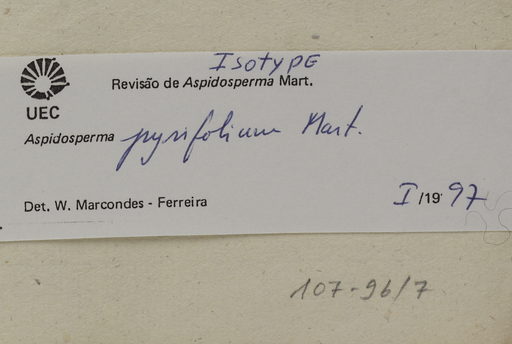 ISOTYPE
Revisão de Aspidosperma Mart.
UEC
Aspidosperma pyrifolium Mart.
Det. W. Marcondes - Ferreira
I/1997
107-96/7